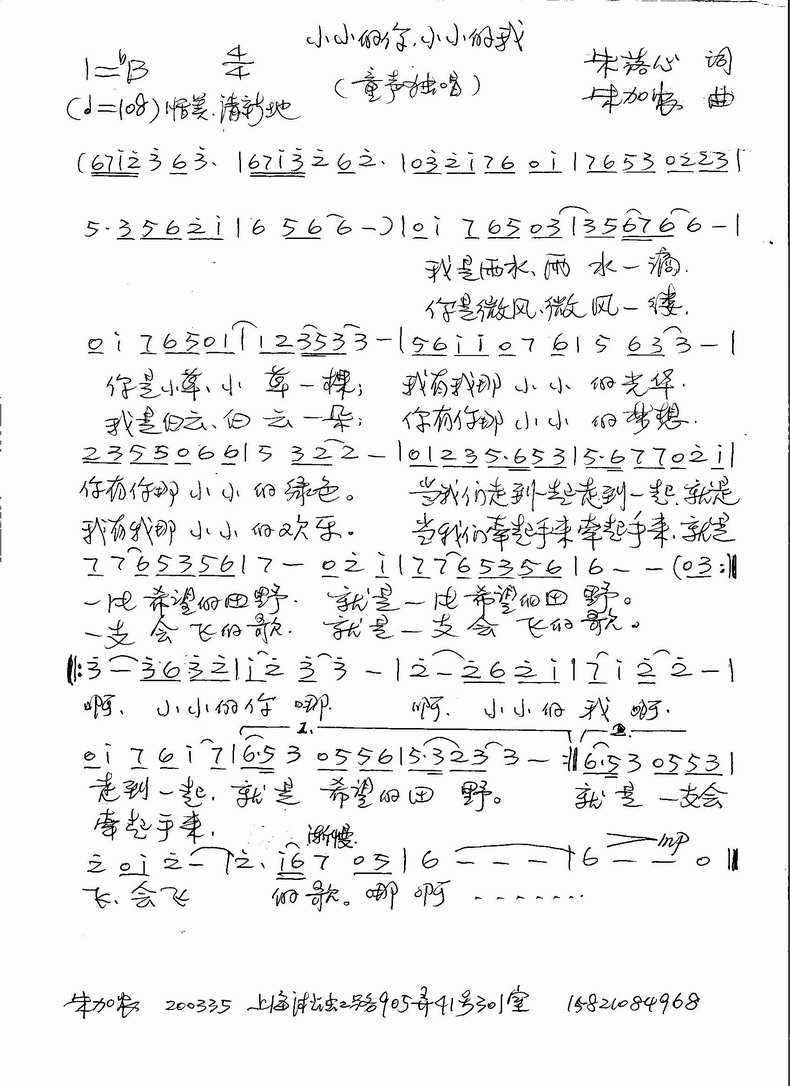 小小的你,小小的我
1=♭B 4/4 朱落心 词
(童声独唱)
(♩=108) 恬美.清新地 朱加农 曲
(671̇2̇ 3̇ 6 3̇. |671̇3̇ 2̇ 6 2̇. |03̇2̇1̇76 01̇ |7653 0223|
5·3562̇1̇|6 566 -)|01̇ 76503|356766 -|
我是雨水、雨 水一滴.
你是微风、微 风一缕.
01̇ 76501|123533 -|561̇1̇0761|5 633 -|
你是小草、小 草一棵; 我有我那小小的光华.
我是白云、白 云一朵; 你有你那小小的梦想.
23550661|5 322 -|01235·653|5·67702̇1̇|
你有你那小小的绿色。 当我们走到一起走到一起,就是
我有我那小小的欢乐。 当我们牵起手来牵起手来,就是
77653561|7 - 02̇1̇|77653561|6 - - (03:‖
一片希望的田野. 就是一片希望的田野。
一支会飞的歌. 就是一支会飞的歌。
‖:3̇ - 3̇63̇2̇|1̇2̇ 3̇3̇ -|2̇ - 2̇62̇1̇|71̇ 2̇2̇ -|
啊. 小小的你 哪. 啊. 小小的我 啊.
1. 2.
01̇ 761̇7|6·53 0556|5·3233 - :‖6·53 0553|
走到一起,就是 希望的田野。 就是一支会
牵起手来,
渐慢. mp
2̇ 01̇ 2̇ -|2̇. 1̇67 05|6 - - -|6 - - 0‖
飞、会飞 的歌。哪 啊 .......
朱加农 200335 上海 905弄41号301室 15821084968